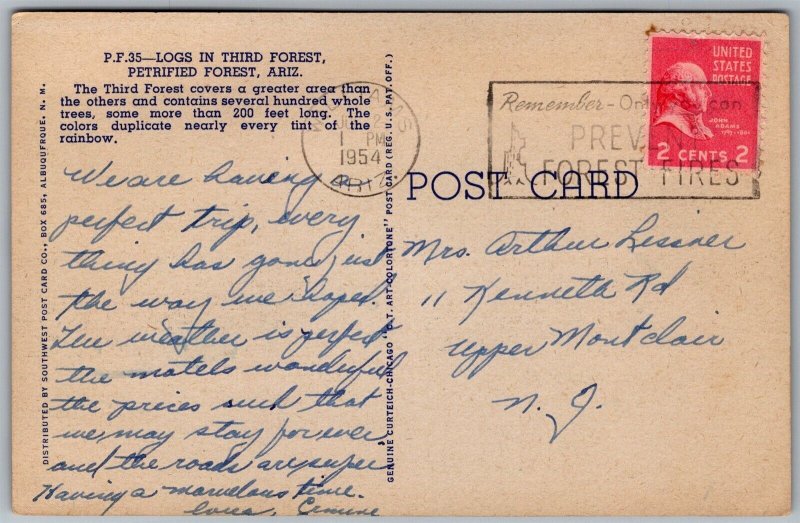 P.F.35—LOGS IN THIRD FOREST,
PETRIFIED FOREST, ARIZ.
The Third Forest covers a greater area than
the others and contains several hundred whole
trees, some more than 200 feet long. The
colors duplicate nearly every tint of the
rainbow.
We are having a
perfect trip, every
thing has gone just
the way we hoped.
The weather is perfect
the motels wonderful
the prices such that
we may stay forever
and the roads are super
Having a marvelous time.
DISTRIBUTED BY SOUTHWEST POST CARD CO., BOX 685, ALBUQUERQUE, N. M.
GENUINE CURTEICH-CHICAGO "C.T. ART-COLORTONE" POST CARD (REG. U.S. PAT. OFF.)
1 PM
1954
ARIZ.
Remember-Only you can
PREV
FOREST FIRES
UNITED
STATES
POSTAGE
JOHN
ADAMS
2 CENTS 2
POST CARD
Mrs. Arthur Lessner
11 Kenneth Rd
Upper Montclair
N. J.